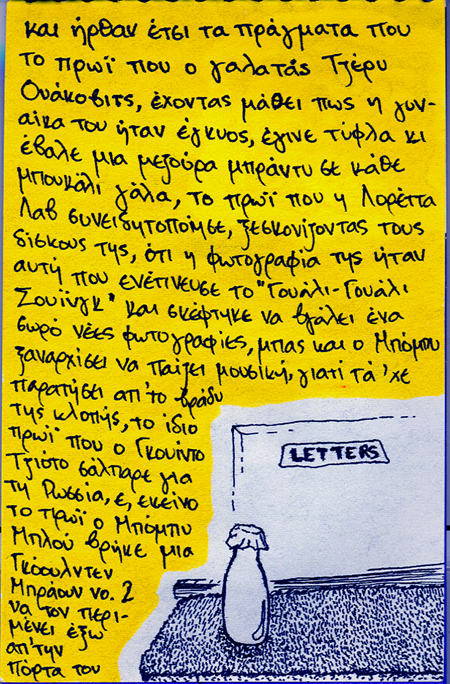 και ήρθαν έτσι τα πράγματα που
το πρωί που ο γαλατάς Τζέρυ
Ουάκοβιτς, έχοντας μάθει πως η γυν-
αίκα του ήταν έγκυος, έγινε τύφλα κι
έβαλε μια μεζούρα μπράντυ σε κάθε
μπουκάλι γάλα, το πρωί που η Λορέττα
Λαβ συνειδητοποίησε, ξεσκονίζοντας τους
δίσκους της, ότι η φωτογραφία της ήταν
αυτή που ενέπνευσε το "Γουάλι-Γουάλι
Σουΐνγκ" και σκέφτηκε να βγάλει ένα
σωρό νέες φωτογραφίες, μπας και ο Μπόμπυ
ξαναρχίσει να παίζει μουσική, γιατί τά 'χε
παρατήσει απ' το βράδυ
της κλοπής, το ίδιο
πρωΐ που ο Γκουίντο
Τζιότο σάλπαρε για
τη Ρωσσία, ε, εκείνο
το πρωί ο Μπόμπυ
Μπλού βρήκε μια
Γκόουλντεν
Μπράουν νο. 2
να τον περι-
μένει έξω
απ' την
πόρτα του
LETTERS